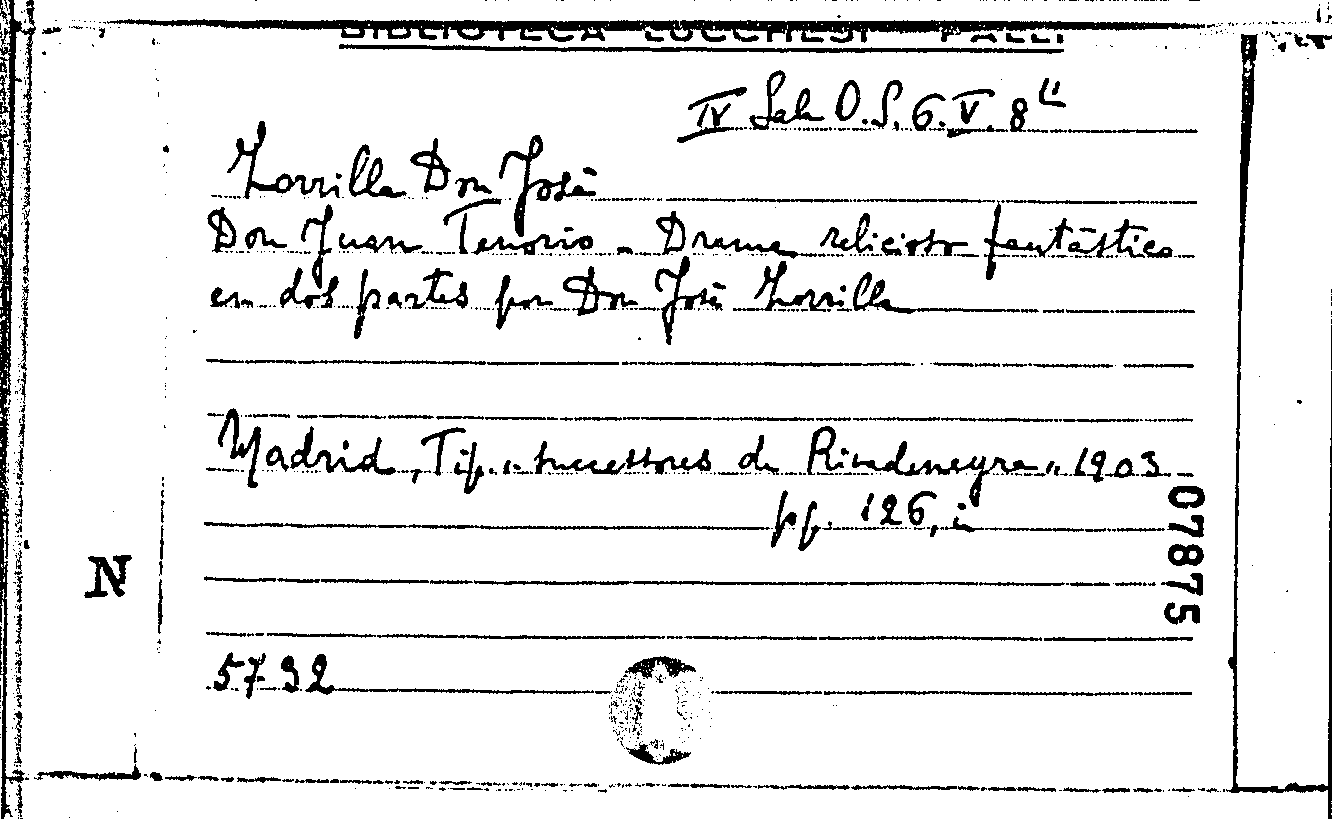 BIBLIOTECA LUCCHESI PALLI
IV Sala O.S. 6. V. 8
Zorrilla Don José
Don Juan Tenorio - Drama relicioso fantástico
en dos partes por Don José Zorrilla
Madrid, Tip. "Successores de Rivadeneyra" 1903
pp. 126, i
07875
N
5732